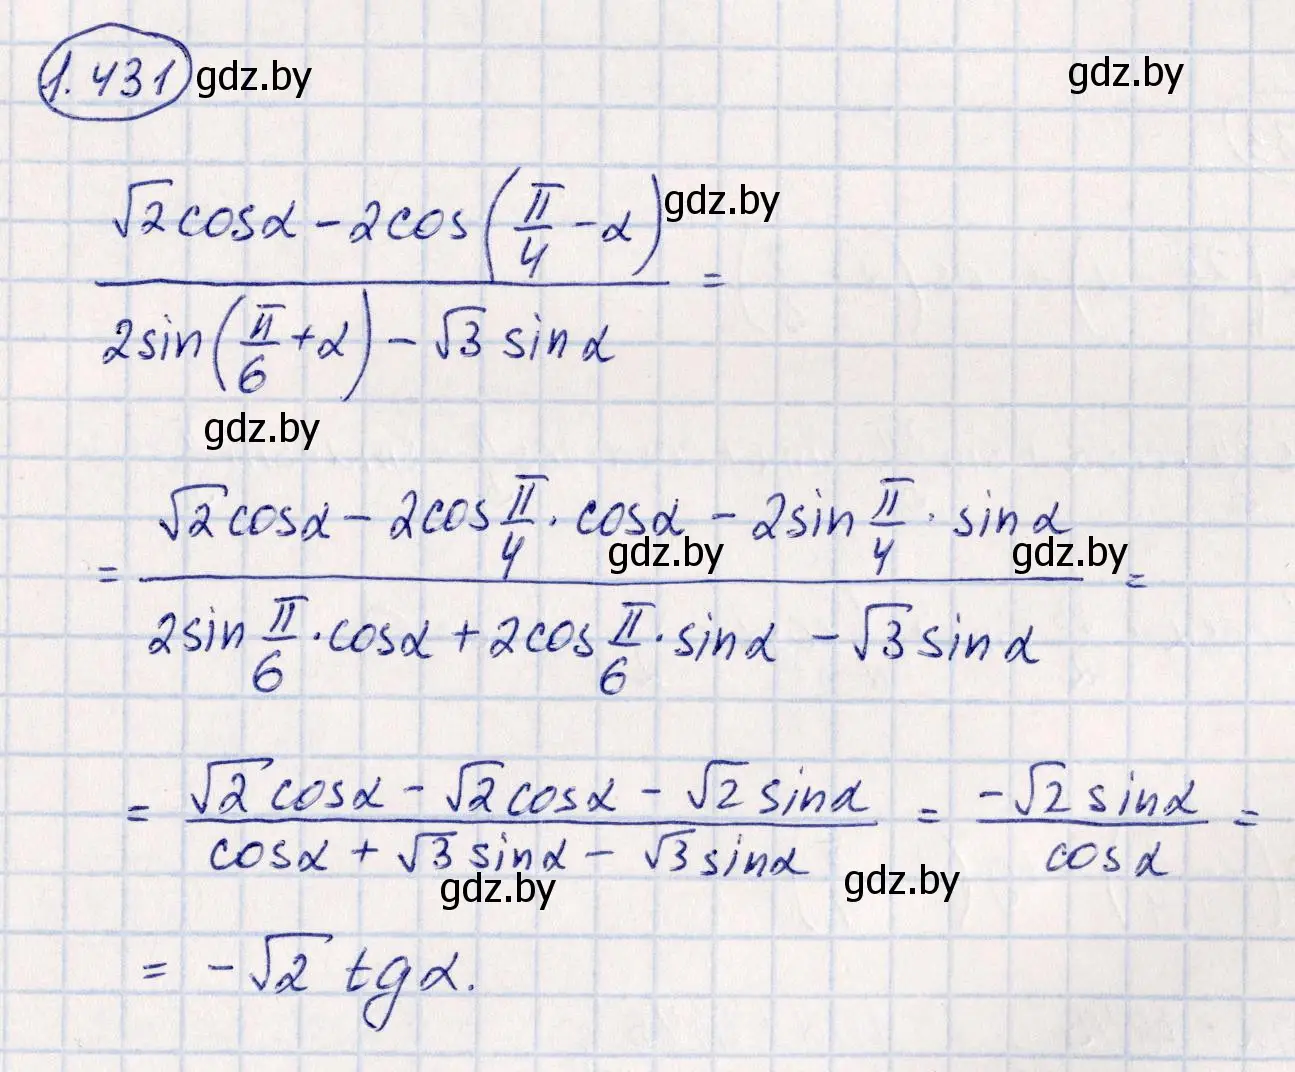 1.431 gdz.by gdz.by
√2cosα − 2cos(π/4 − α) gdz.by
/ =
2sin(π/6 + α) − √3 sinα
gdz.by
√2cosα − 2cos π/4 · cosα − 2sin π/4 · sinα
gdz.by gdz.by
= / =
2sin π/6 · cosα + 2cos π/6 · sinα − √3 sinα
= (√2cosα − √2cosα − √2 sinα)/(cosα + √3 sinα − √3 sinα) = (−√2 sinα)/(cosα) =
gdz.by gdz.by
= −√2 tgα.